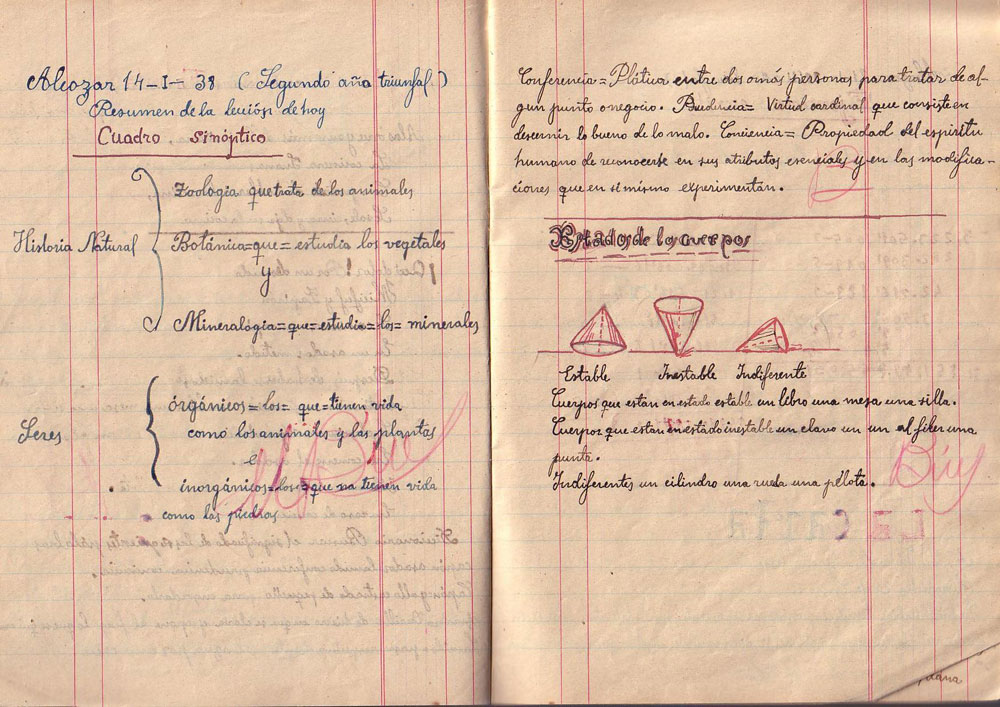 Alcozar 14-I-38 (Segundo año triunfal.)
Resumen de la lección de hoy
Cuadro sinóptico
Historia Natural
Zoologia que trata de los animales
Botánica=que=estudia los vegetales
y
Mineralógia=que=estudia=los=minerales
Seres
órgánicos=los=que=tienen vida
como los animales y las plantas
e
inorgánicos=los=que no tienen vida
como las piedras
Conferencia=Plática entre dos o más personas para tratar de al-
gun punto o negocio. Prudencia= Virtud cardinal que consiste en
descernir lo bueno de lo malo. Conciencia= Propiedad del espiritu
humano de reconocerse en sus atributos esenciales y en las modifica-
ciones que en si mismo experimentan.
Estados de los cuerpos
Estable Inestable Indiferente
Cuerpos que estan en estado estable un libro una mesa una silla.
Cuerpos que estan en estado inestable un clavo un un alfiler una
punta.
Indiferentes un cilindro una rueda una pélota.